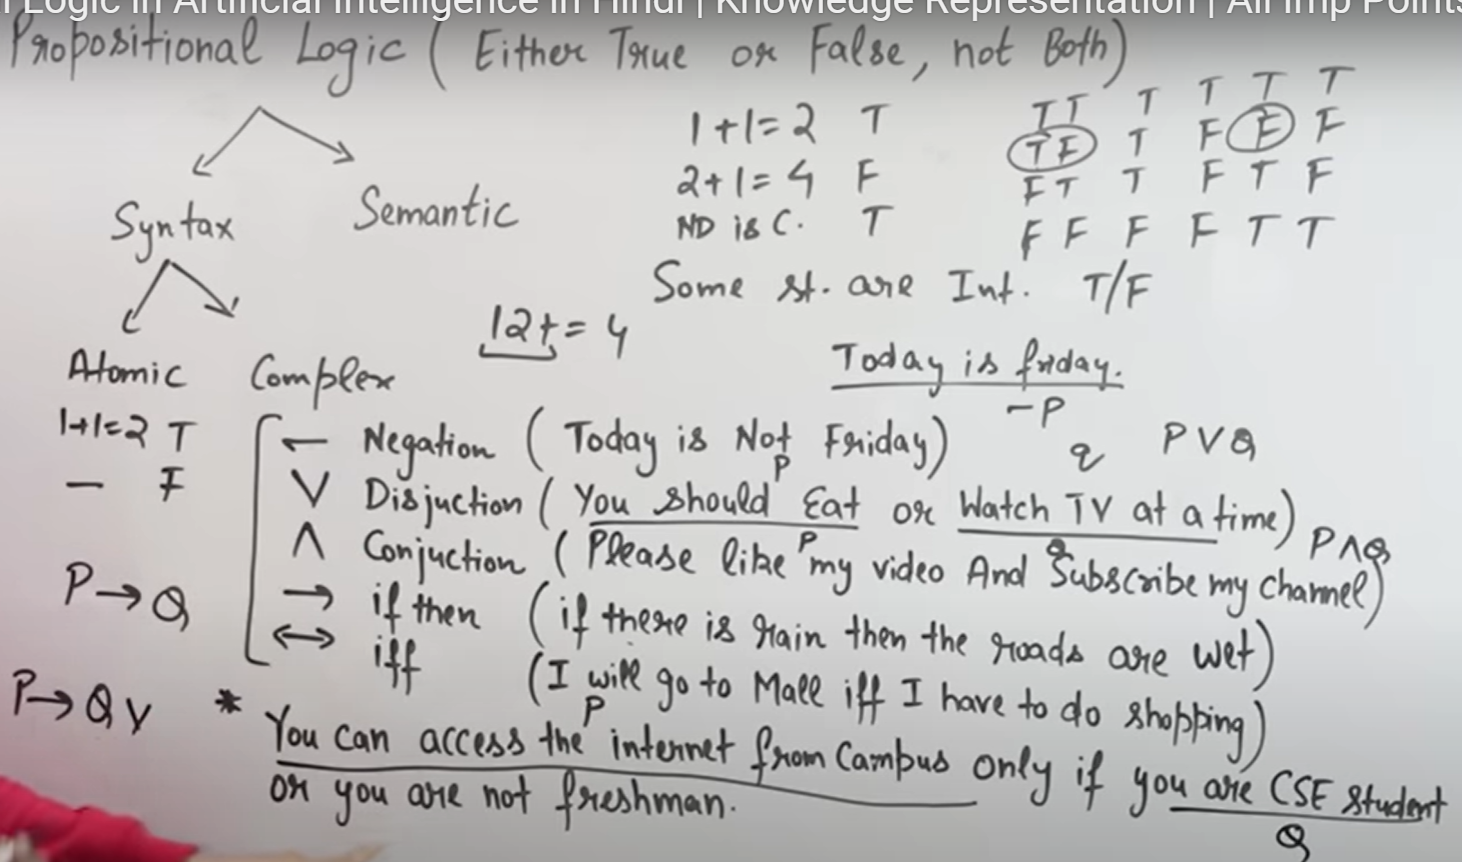 Logic in Artificial Intelligence in Hindi | Knowledge Representation | All Imp Points
Propositional Logic ( Either True or False, not Both)
Syntax
Semantic
1+1=2 T
2+1=4 F
ND is C. T
Some st. are Int. T/F
T T T T T T
T F T F F F
F T T F T F
F F F F T T
12+=4
Today is friday.
¬P
Atomic
Complex
1+1=2 T
— F
¬ Negation ( Today is Not Friday)
P q P V Q
V Disjuction ( You should Eat or Watch TV at a time)
P Q P ∧ Q
∧ Conjuction ( Please like my video And Subscribe my channel)
P → Q
→ if then ( if there is rain then the roads are wet)
↔ iff (I will go to Mall iff I have to do shopping)
P → Q V
P
* You can access the internet from Campus only if you are CSE student
or you are not freshman.
Q